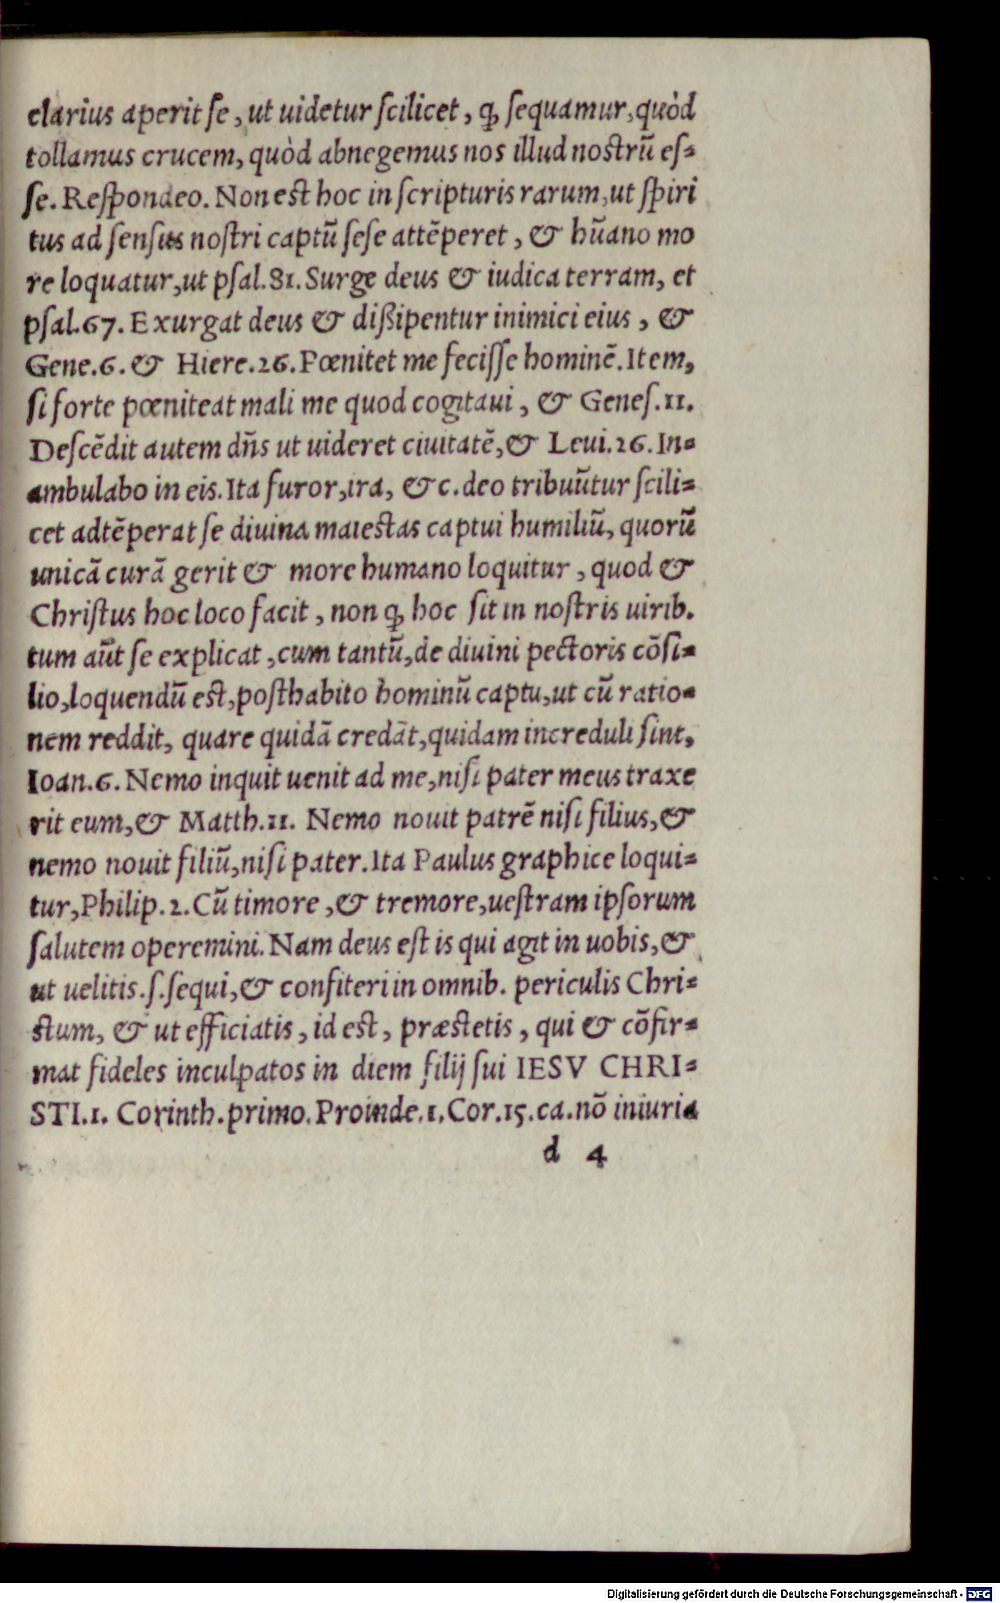 clarius aperit ſe, ut uidetur ſcilicet, ꝙ ſequamur, quòd
tollamus crucem, quòd abnegemus nos illud noſtrũ eſ-
ſe. Reſpondeo. Non eſt hoc in ſcripturis rarum, ut ſpiri
tus ad ſenſus noſtri captũ ſeſe attẽperet, & hũano mo
re loquatur, ut pſal. 81. Surge deus & iudica terram, et
pſal. 67. Exurgat deus & dißipentur inimici eius, &
Gene. 6. & Hiere. 26. Pœnitet me feciſſe hominẽ. Item,
ſi forte pœniteat mali me quod cogitaui, & Geneſ. 11.
Deſcẽdit autem dñs ut uideret ciuitatẽ, & Leui. 26. In-
ambulabo in eis. Ita furor, ira, &c. deo tribuũtur ſcili-
cet adtẽperat ſe diuina maieſtas captui humiliũ, quorũ
unicã curã gerit & more humano loquitur, quod &
Chriſtus hoc loco facit, non ꝙ hoc ſit in noſtris uirib.
tum aũt ſe explicat, cum tantũ, de diuini pectoris cõſi-
lio, loquendũ eſt, poſthabito hominũ captu, ut cũ ratio-
nem reddit, quare quidã credãt, quidam increduli ſint,
Ioan. 6. Nemo inquit uenit ad me, niſi pater meus traxe
rit eum, & Matth. 11. Nemo nouit patrẽ niſi filius, &
nemo nouit filiũ, niſi pater. Ita Paulus graphice loqui-
tur, Philip. 2. Cũ timore, & tremore, ueſtram ipſorum
ſalutem operemini. Nam deus eſt is qui agit in uobis, &
ut uelitis. ſ. ſequi, & confiteri in omnib. periculis Chri-
ſtum, & ut efficiatis, id eſt, præſtetis, qui & cõfir-
mat fideles inculpatos in diem filij ſui IESV CHRI-
STI. 1. Corinth. primo. Proinde. 1. Cor. 15. ca. nõ iniuria
d 4
Digitalisierung gefördert durch die Deutsche Forschungsgemeinschaft - DFG